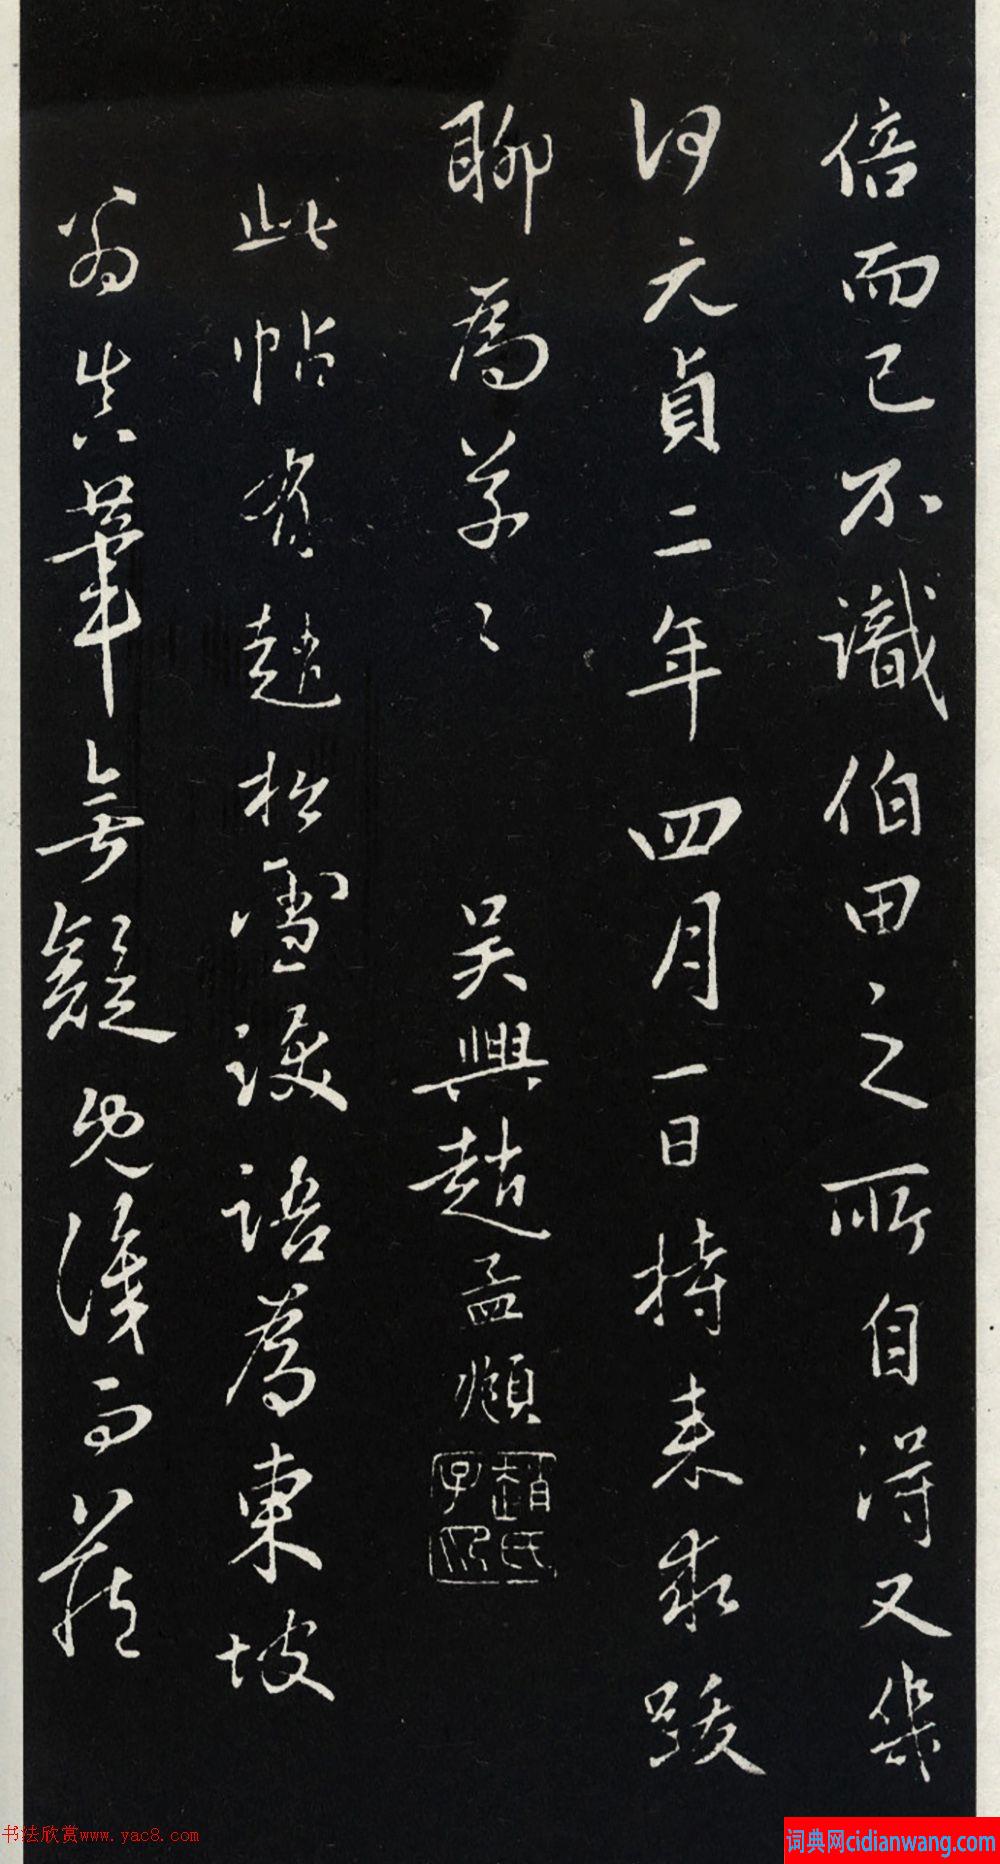 倍而已不識伯田之所自得又幾
何元貞二年四月一日持来求跋
聊為草々
吳興趙孟頫
趙氏子昂
此帖有趙松雪䟦語為東坡
翁真筆無疑也
书法欣赏www.yac8.com
词典网cidianwang.com